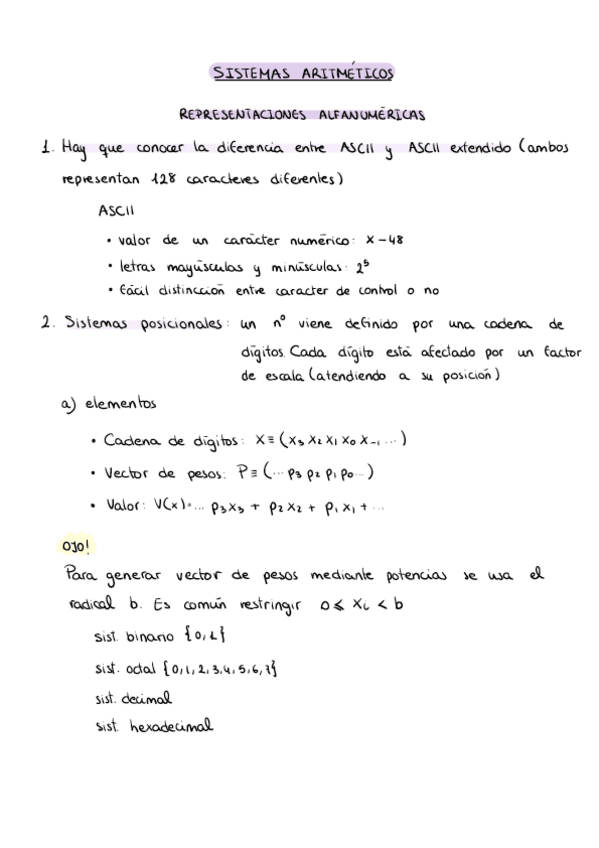 SISTEMAS ARITMÉTICOS
REPRESENTACIONES ALFANUMÉRICAS
1. Hay que conocer la diferencia entre ASCII y ASCII extendido (ambos
representan 128 caracteres diferentes)
ASCII
• valor de un carácter numérico: x-48
• letras mayúsculas y minúsculas: 2⁵
• fácil distincción entre caracter de control o no
2. Sistemas posicionales: un nº viene definido por una cadena de
dígitos. Cada dígito está afectado por un factor
de escala (atendiendo a su posición)
a) elementos
• Cadena de dígitos: X≡(x₃ x₂ x₁ x₀ x₋₁ ...)
• Vector de pesos: P≡(... p₃ p₂ p₁ p₀ ...)
• Valor: V(x)=... p₃x₃ + p₂x₂ + p₁x₁ + ...
OJO!
Para generar vector de pesos mediante potencias se usa el
radical b. Es común restringir 0≤ xᵢ < b
sist. binario {0,1}
sist. octal {0,1,2,3,4,5,6,7}
sist. decimal
sist. hexadecimal